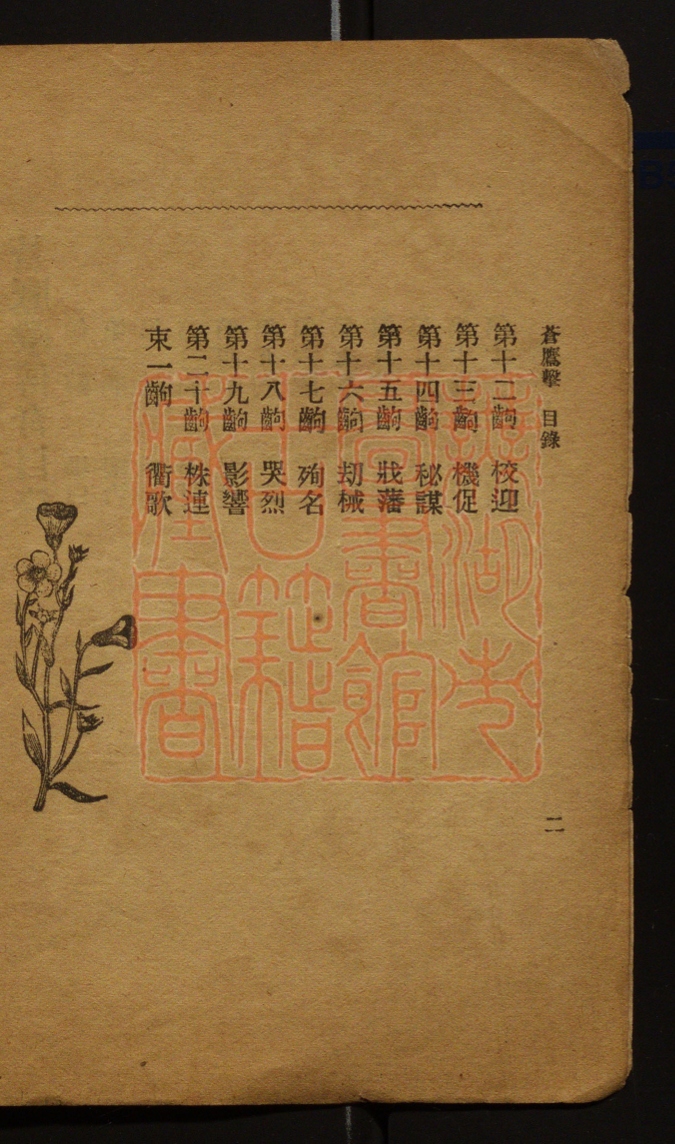 蒼鷹擊　目錄
二
第十二齣　校迎
第十三齣　機促
第十四齣　秘謀
第十五齣　戕藩
第十六齣　刧械
第十七齣　殉名
第十八齣　哭烈
第十九齣　影響
第二十齣　株連
束一齣　衢歌
蕪湖市
圖書館
古籍
藏書